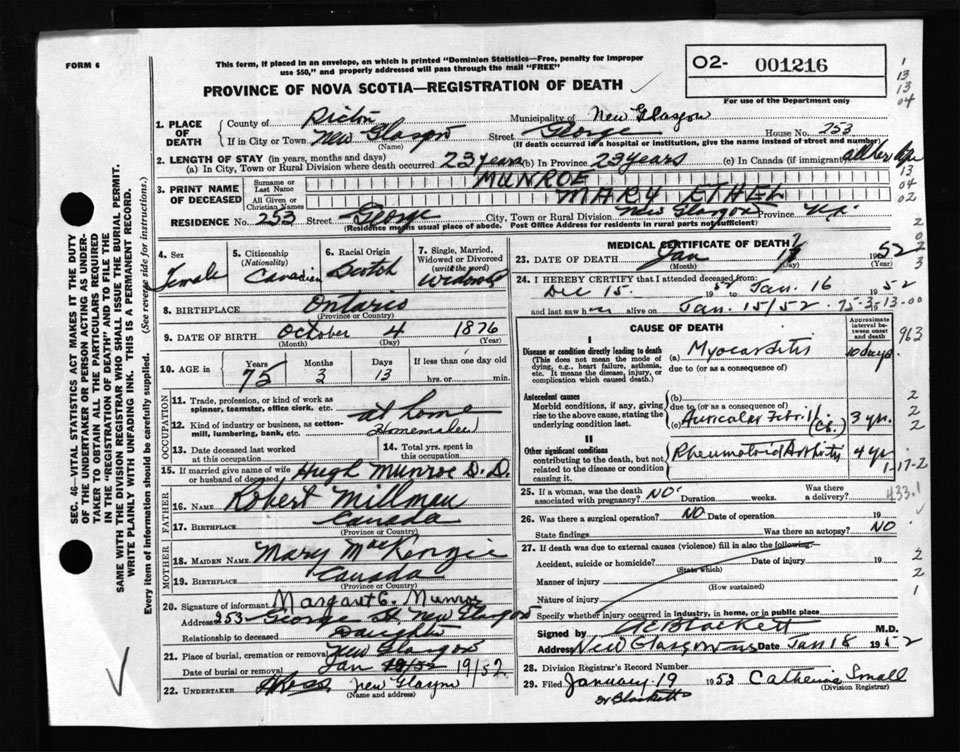 FORM 6
This form, if placed in an envelope, on which is printed "Dominion Statistics—Free, penalty for improper
use $50," and properly addressed will pass through the mail "FREE"
O2- 001216
For use of the Department only
PROVINCE OF NOVA SCOTIA—REGISTRATION OF DEATH
1. PLACE OF DEATH
County of Pictou Municipality of New Glasgow
If in City or Town New Glasgow Street George House No. 253
(Name) (If death occurred in a hospital or institution, give the name instead of street and number)
2. LENGTH OF STAY (in years, months and days)
(a) In City, Town or Rural Division where death occurred 23 years (b) In Province 23 years (c) In Canada (if immigrant) all her life
3. PRINT NAME OF DECEASED
Surname or Last Name MUNROE
All Given or Christian Names MARY ETHEL
RESIDENCE No. 253 Street George City, Town or Rural Division New Glasgow Province N.S.
(Residence means usual place of abode. Post Office Address for residents in rural parts not sufficient)
4. Sex Female
5. Citizenship (Nationality) Canadian
6. Racial Origin Scotch
7. Single, Married, Widowed or Divorced (write the word) Widowed
8. BIRTHPLACE Ontario
(Province or Country)
9. DATE OF BIRTH October 4 1876
(Month) (Day) (Year)
10. AGE in Years 75 Months 3 Days 13 If less than one day old
hrs. or min.
OCCUPATION
11. Trade, profession, or kind of work as spinner, teamster, office clerk, etc. at home
12. Kind of industry or business, as cotton-mill, lumbering, bank, etc. Homemaker
13. Date deceased last worked at this occupation
14. Total yrs. spent in this occupation
15. If married give name of wife or husband of deceased Hugh Munroe D.D.
FATHER
16. NAME Robert Millman
17. BIRTHPLACE Canada
(Province or Country)
MOTHER
18. MAIDEN NAME Mary MacKenzie
19. BIRTHPLACE Canada
(Province or Country)
20. Signature of informant Margaret C. Munroe
Address 253 George St. New Glasgow
Relationship to deceased Daughter
21. Place of burial, cremation or removal New Glasgow
Date of burial or removal Jan 19/52
22. UNDERTAKER New Glasgow
(Name and address)
MEDICAL CERTIFICATE OF DEATH
23. DATE OF DEATH Jan 17 1952
(Month) (Day) (Year)
24. I HEREBY CERTIFY that I attended deceased from:
Dec 15. 19 to Jan. 16 1952
and last saw her alive on Jan. 15/52
75-3-13-00
CAUSE OF DEATH
Approximate interval between onset and death
I
Disease or condition directly leading to death
(This does not mean the mode of dying, e.g., heart failure, asthenia, etc. It means the disease, injury, or complication which caused death.)
(a) Myocarditis 10 days
due to (or as a consequence of)
Antecedent causes
Morbid conditions, if any, giving rise to the above cause, stating the underlying condition last.
(b)
due to (or as a consequence of)
(c) Auricular Fibrill. 3 yr.
II
Other significant conditions
contributing to the death, but not related to the disease or condition causing it.
Rheumatoid Arthritis 4 yr
1-17-2
433.1
963
25. If a woman, was the death associated with pregnancy? NO Duration weeks. Was there a delivery?
26. Was there a surgical operation? NO Date of operation 19
State findings Was there an autopsy? NO
27. If death was due to external causes (violence) fill in also the following:
Accident, suicide or homicide? Date of injury 19
(State which)
Manner of injury
(How sustained)
Nature of injury
Specify whether injury occurred in industry, in home, or in public place
Signed by Blackett M.D.
Address New Glasgow NS Date Jan 18 1952
28. Division Registrar's Record Number
29. Filed January 19 1952 Catherine Small
(Division Registrar)
Dr Blackett
SEC. 46— VITAL STATISTICS ACT MAKES IT THE DUTY
OF THE UNDERTAKER OR PERSON ACTING AS UNDERTAKER
TO OBTAIN ALL THE PARTICULARS REQUIRED
IN THE "REGISTRATION OF DEATH" AND TO FILE THE
SAME WITH THE DIVISION REGISTRAR WHO SHALL ISSUE THE BURIAL PERMIT.
WRITE PLAINLY WITH UNFADING INK. THIS IS A PERMANENT RECORD.
Every item of information should be carefully supplied. (See reverse side for instructions.)